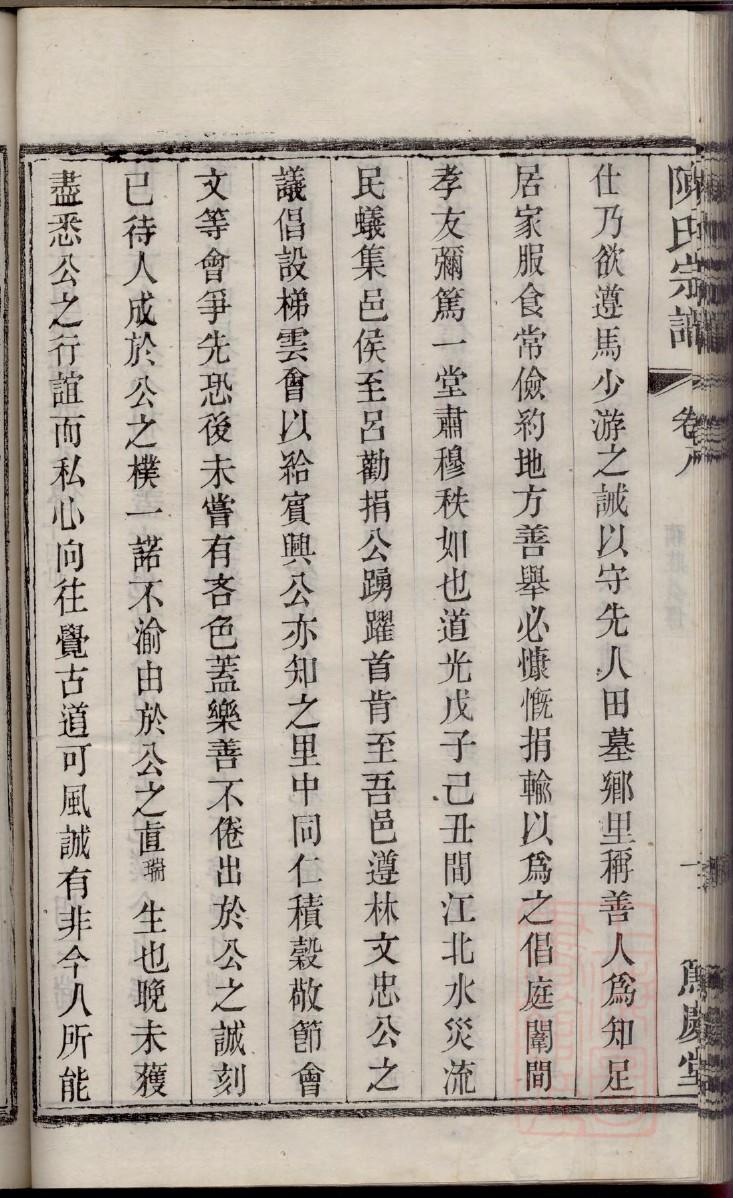 陳氏宗譜 卷八 篤慶堂
仕乃欲遵馬少游之誡以守先人田墓鄉里稱善人為知足
居家服食常儉約地方善舉必慷慨捐輸以為之倡庭闈間
孝友彌篤一堂肅穆秩如也道光戊子己丑間江北水災流
民蟻集邑侯至呂勸捐公踴躍首肯至吾邑遵林文忠公之
議倡設梯雲會以給賓興公亦知之里中同仁積穀敬節會
文等會爭先恐後未嘗有吝色蓋樂善不倦出於公之誠刻
已待人成於公之樸一諾不渝由於公之直瑞生也晚未獲
盡悉公之行誼而私心向往覺古道可風誠有非今人所能